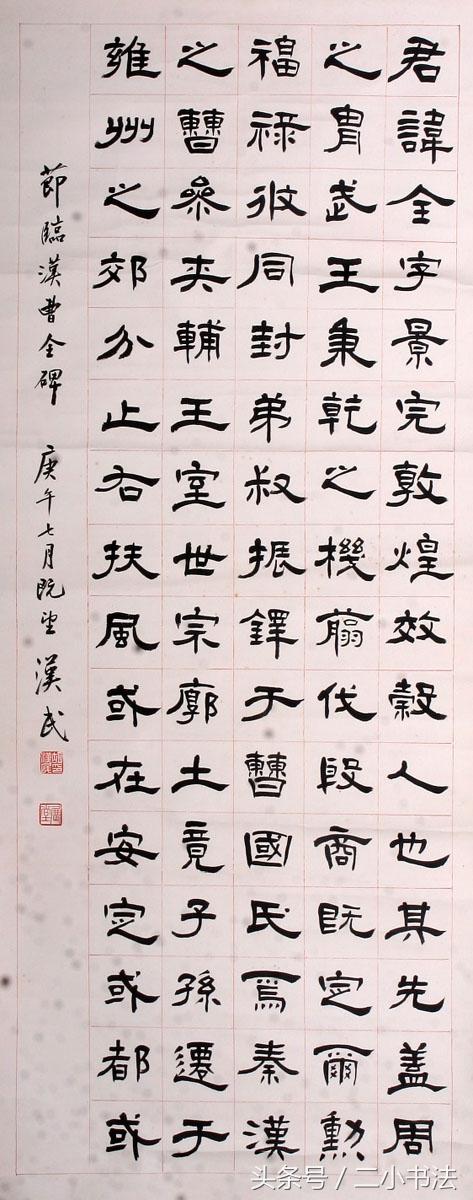 君諱全字景完敦煌效穀人也其先蓋周
之胄武王秉乾之機翦伐殷商既定爾勳
福祿攸同封弟叔振鐸于曹國氏焉秦漢
之曹參夾輔王室世宗廓土竟子孫遷于
雍州之郊分止右扶風或在安定或都或
節臨漢曹全碑 庚午七月既望 漢民
头条号 / 二小书法